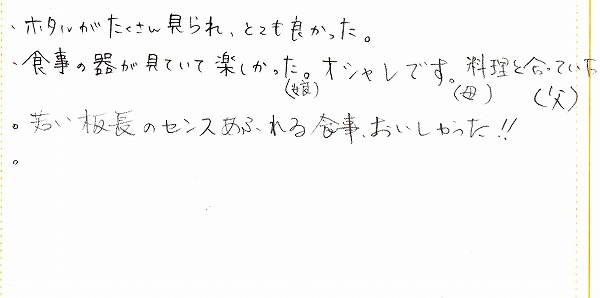 ・ホタルがたくさん見られ、とても良かった。
・食事の器が見ていて楽しかった。オシャレです。料理と合っていた
(娘) (母) (父)
。若い板長のセンスあふれる食事、おいしかった!!
。